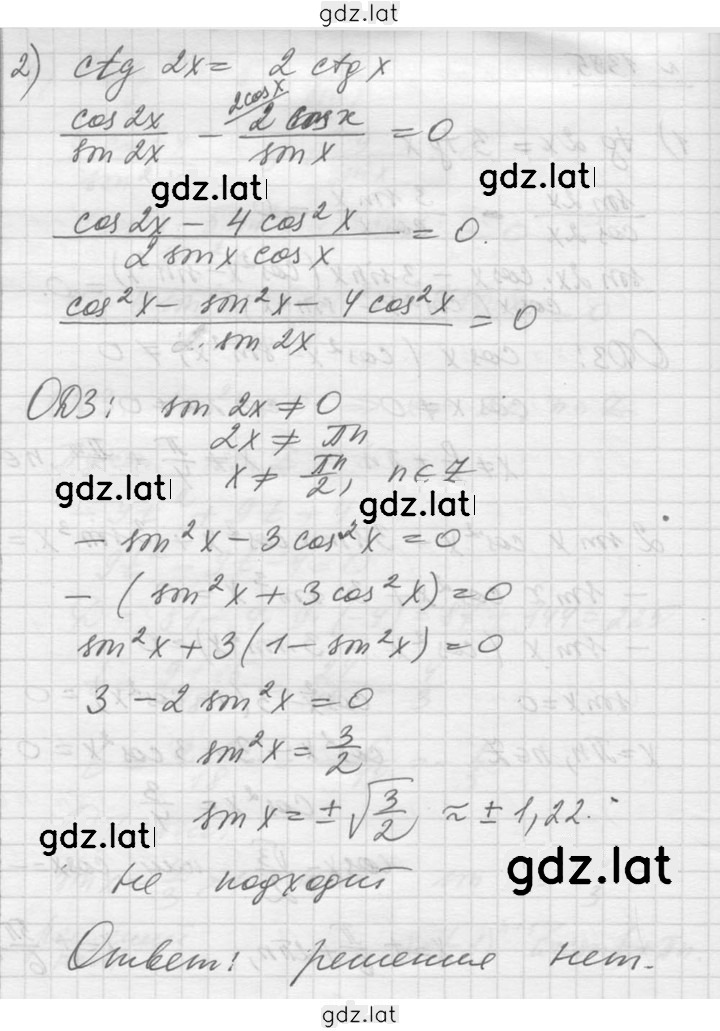 gdz.lat
2) ctg 2x = 2 ctg x
cos 2x / sin 2x − 2 cos x / sin x = 0
2cosx
gdz.lat
gdz.lat
cos 2x − 4 cos²x / 2 sin x cos x = 0.
cos²x − sin²x − 4 cos²x / sin 2x = 0
ОДЗ: sin 2x ≠ 0
2x ≠ πn
x ≠ πn/2, n ∈ Z
gdz.lat
gdz.lat
− sin²x − 3 cos²x = 0
− (sin²x + 3 cos²x) = 0
sin²x + 3(1 − sin²x) = 0
3 − 2 sin²x = 0
sin²x = 3/2
sin x = ± √3/2 ≈ ± 1,22.
gdz.lat
gdz.lat
не подходит
Ответ: решения нет.
gdz.lat